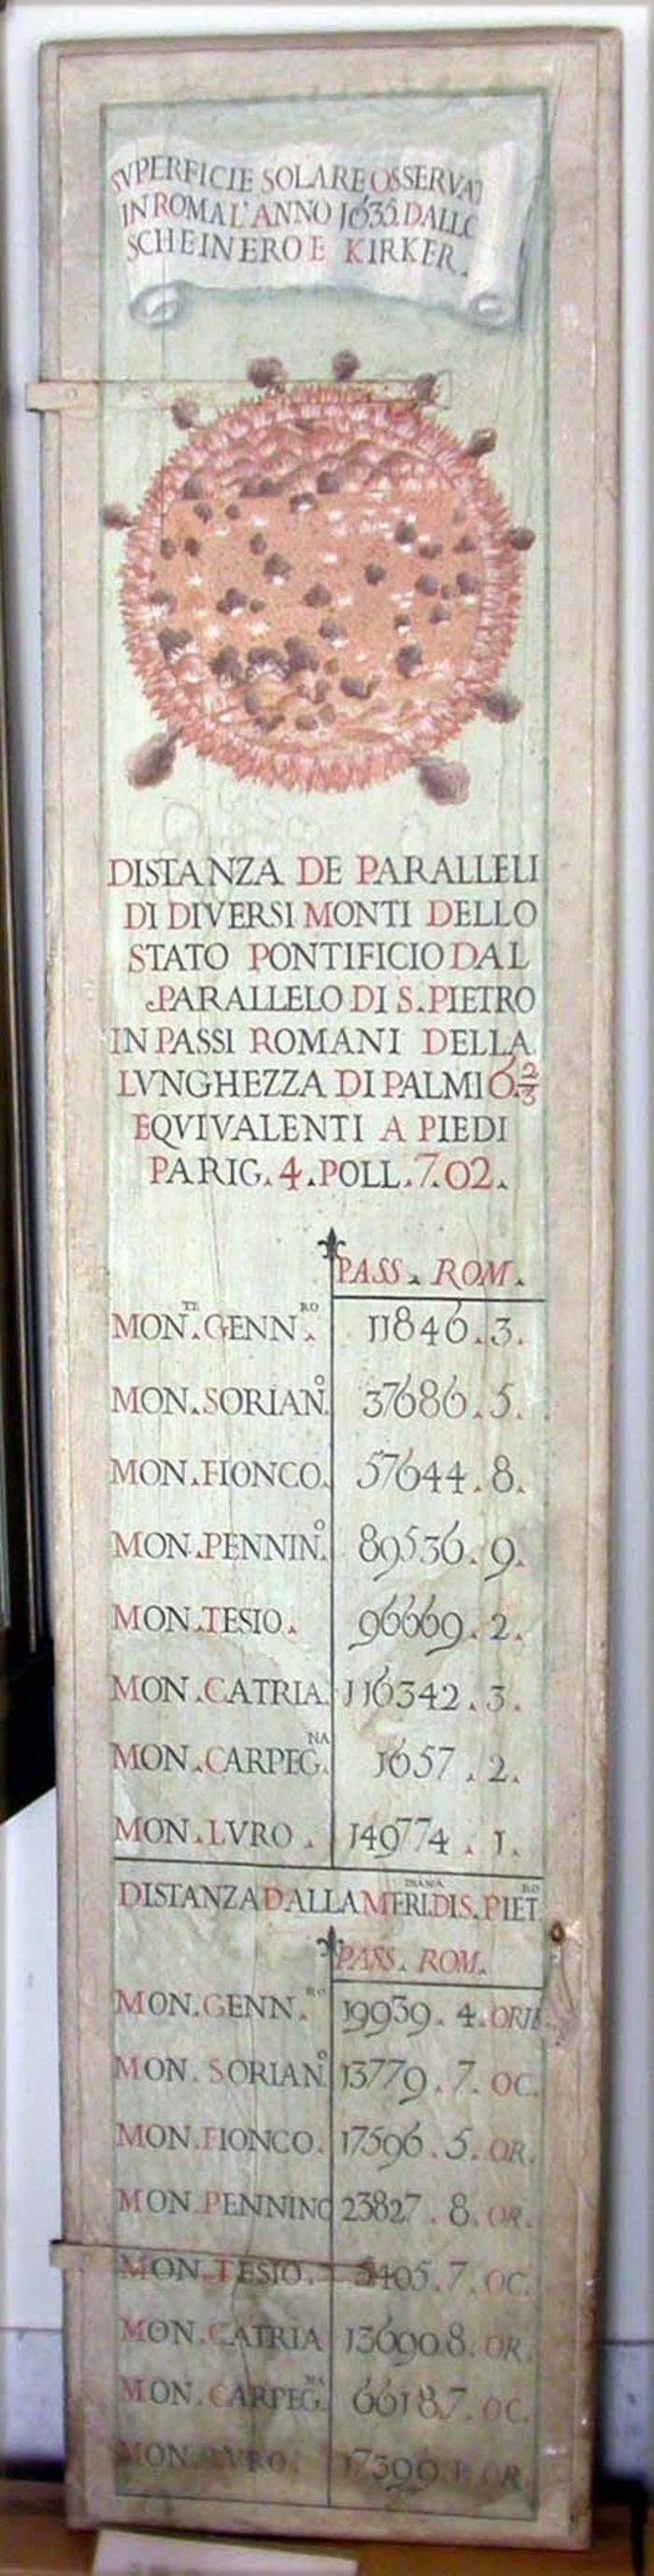 SVPERFICIE SOLARE OSSERVAT
IN ROMA L'ANNO 1635. DALLO
SCHEINERO E KIRKER.
DISTANZA DE PARALLELI
DI DIVERSI MONTI DELLO
STATO PONTIFICIO DAL
PARALLELO DI S. PIETRO
IN PASSI ROMANI DELLA
LVNGHEZZA DI PALMI 6.2/3
EQVIVALENTI A PIEDI
PARIG. 4. POLL. 7.02.
PASS. ROM.
MON.TE GENN.RO 11846.3.
MON. SORIAN.O 37686.5.
MON. FIONCO. 57644.8.
MON. PENNIN.O 89536.9.
MON. TESIO. 96669.2.
MON. CATRIA. 116342.3.
MON. CARPEG.NA 1657.2.
MON. LVRO. 149774.1.
DISTANZA DALLA MERI.DIANA DI S. PIET.RO
PASS. ROM.
MON. GENN.RO 19939.4. ORIE
MON. SORIAN.O 13779.7. OC.
MON. FIONCO. 17596.5. OR.
MON. PENNINO 23827.8. OR.
MON. TESIO. 5405.7. OC.
MON. CATRIA 13690.8. OR.
MON. CARPEG.NA 6618.7. OC.
MON. LVRO 17399.1. OR